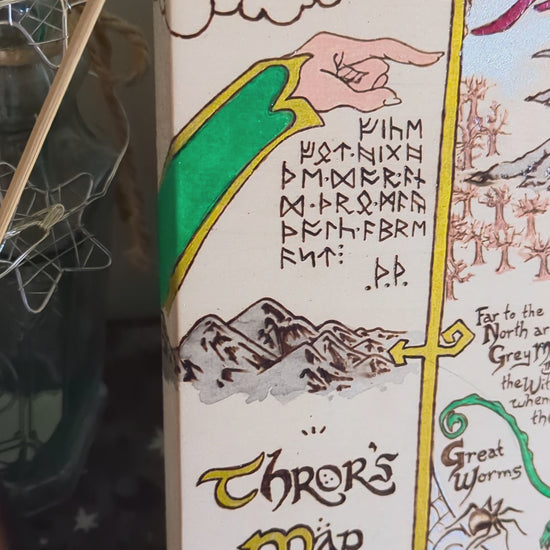 ᚠᛁᚢᛖ
ᚠᛟᛏ·ᚻᛁᚷᚻ
ᚦᛖ·ᛞᚩᚱ·ᚪᚾ
ᛞ·ᚦᚱᛟ·ᛗᚪᚣ
ᚹᚪᛚᚳ·ᚪᛒᚱᛖ
ᚪᛋᛏ⁝
.ᚦ.ᚦ.
Thror's
Map
Far to the
North ar
Grey M
the Wit
when
th
Great
Worms